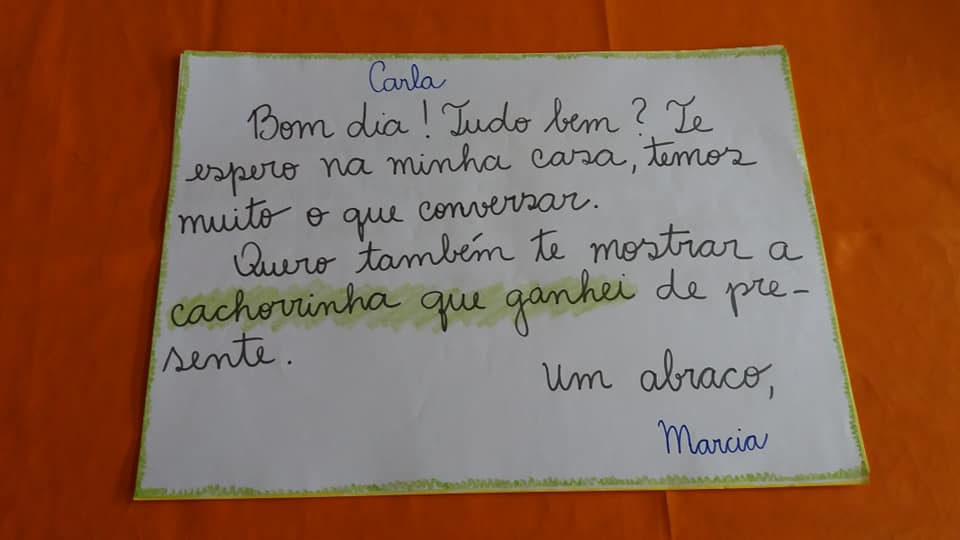 Carla
Bom dia! Tudo bem? Te
espero na minha casa, temos
muito o que conversar.
Quero também te mostrar a
cachorrinha que ganhei de pre-
sente.
Um abraco,
Marcia